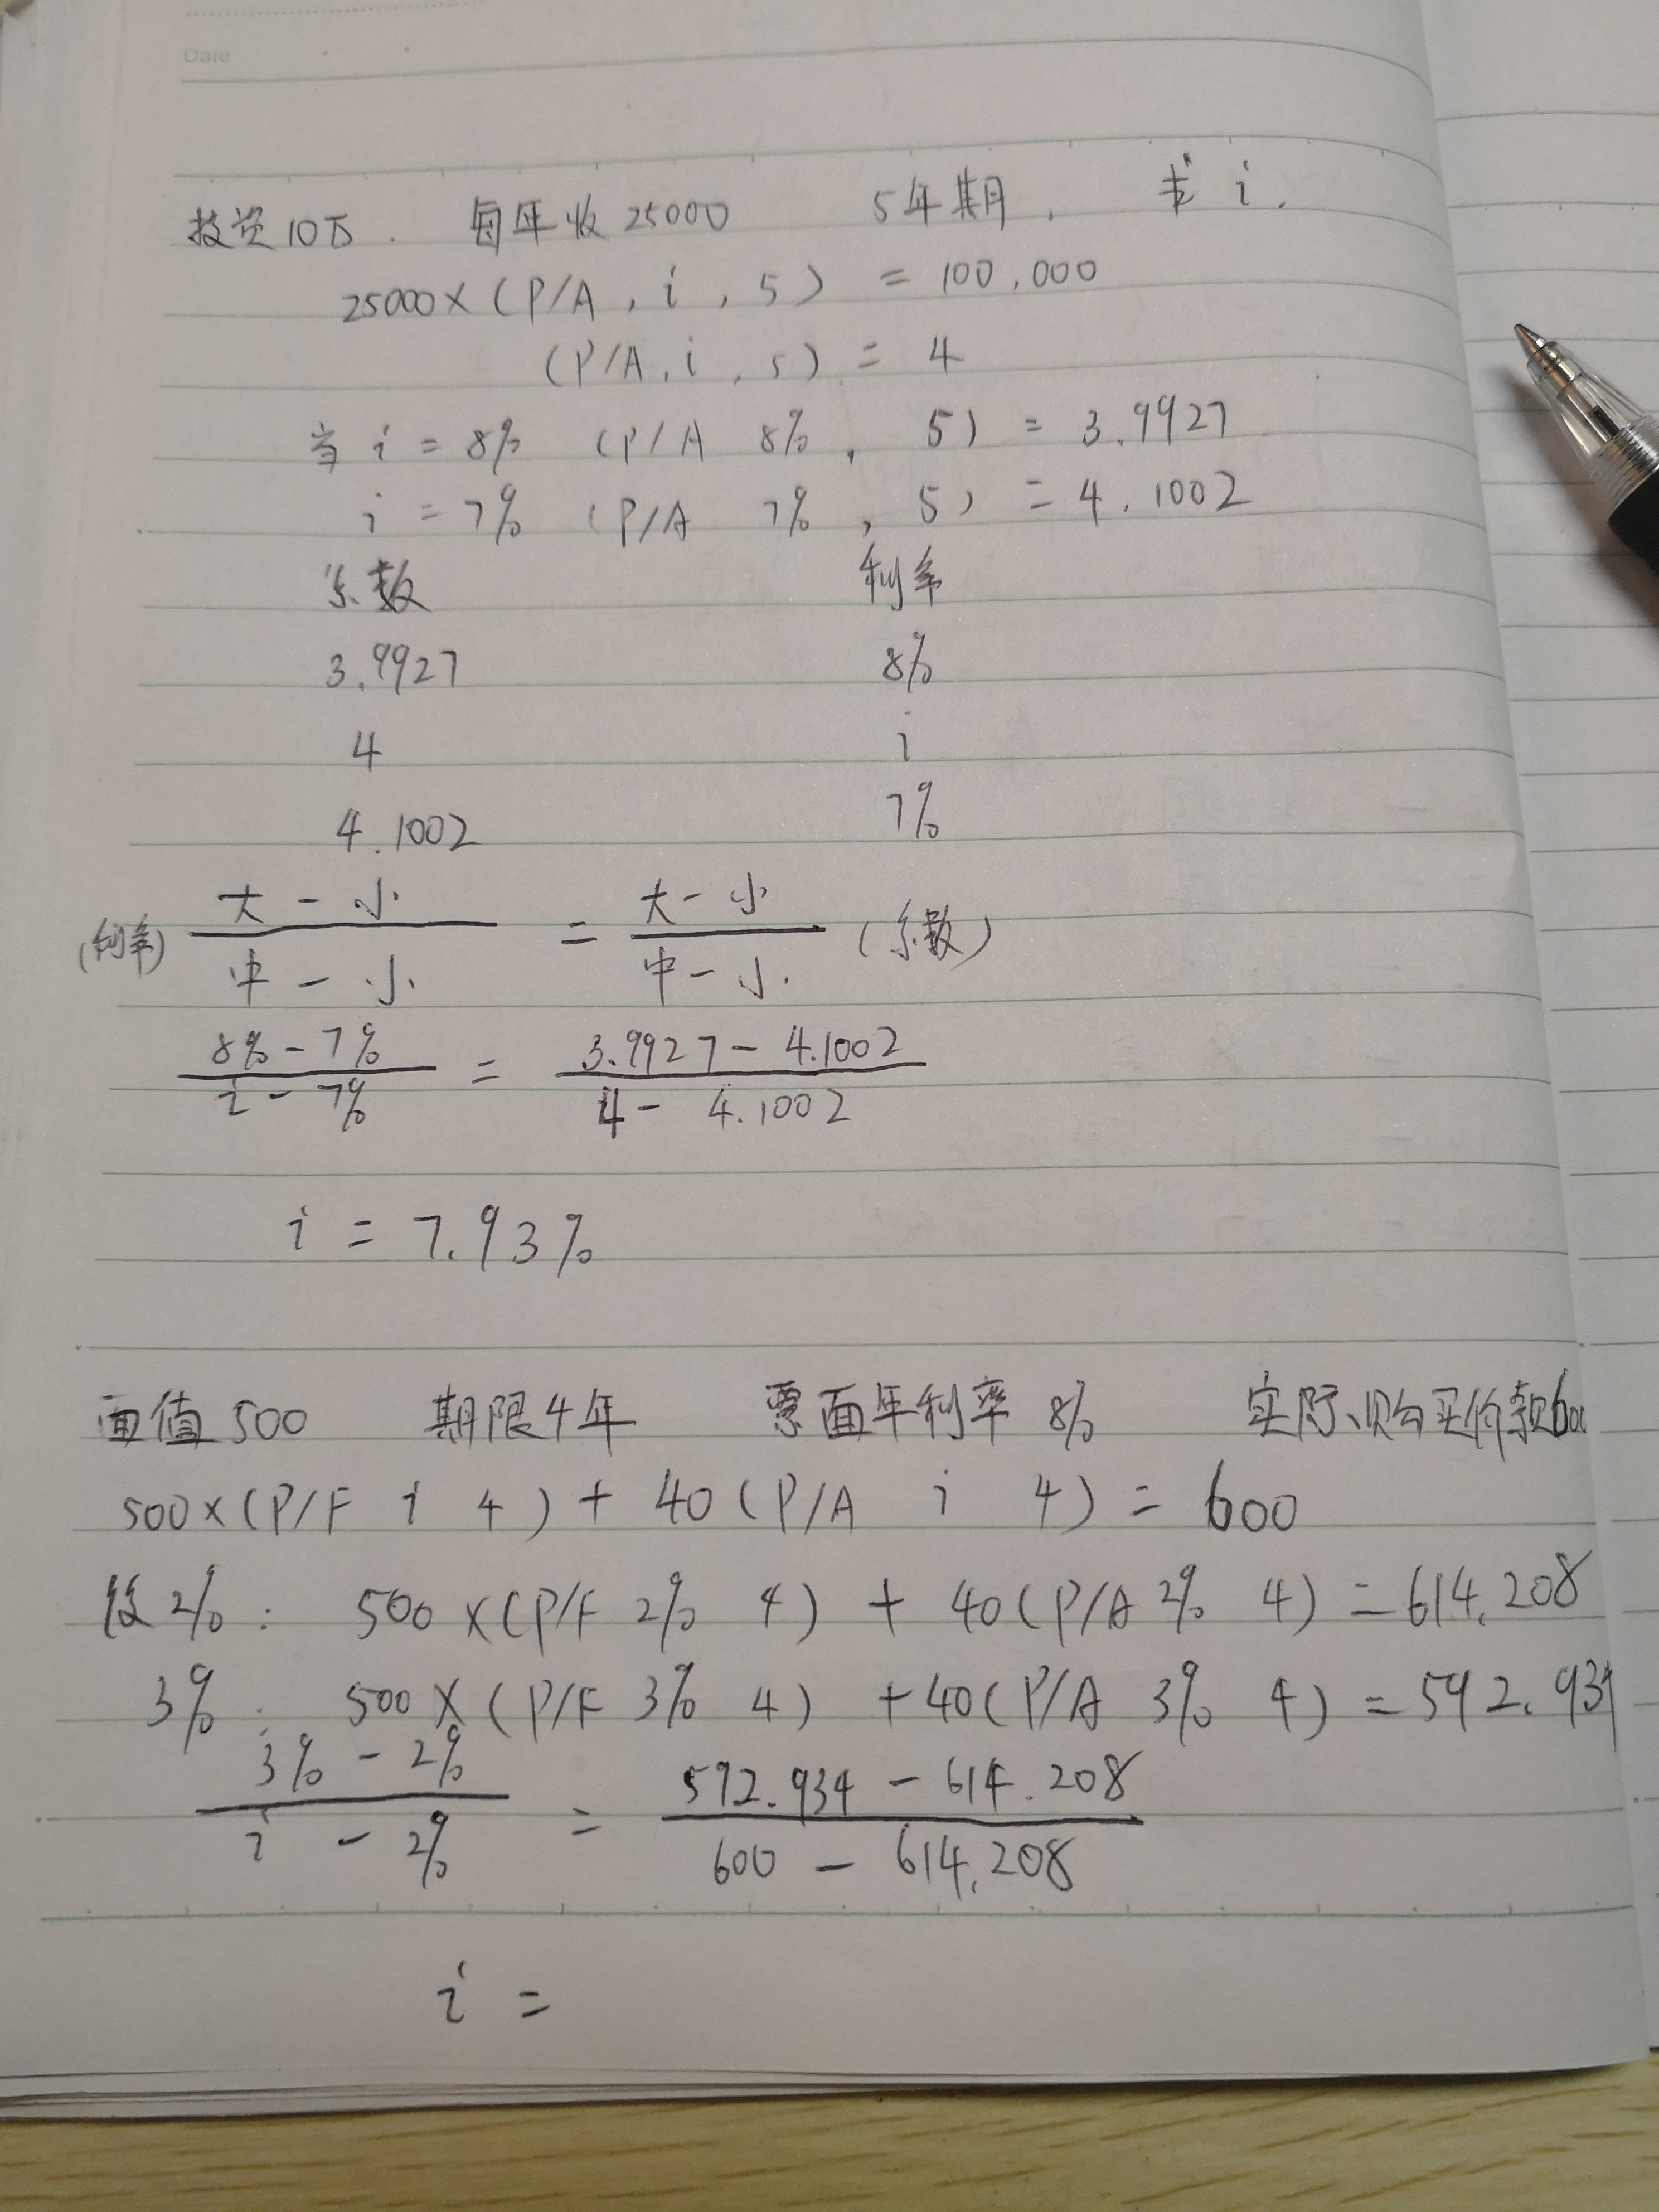 Date
投资10万. 每年收25000 5年期, 求 i.
25000×(P/A, i, 5) = 100,000
(P/A, i, 5) = 4
当 i = 8% (P/A 8%, 5) = 3.9927
i = 7% (P/A 7%, 5) = 4.1002
系数 利率
3.9927 8%
4 i
4.1002 7%
(利率) 大-小/中-小 = 大-小/中-小 (系数)
8%-7%/i-7% = 3.9927-4.1002/4-4.1002
i = 7.93%
面值500 期限4年 票面年利率8% 实际购买价款600
500×(P/F i 4) + 40(P/A i 4) = 600
设2%: 500×(P/F 2% 4) + 40(P/A 2% 4) = 614.208
3%: 500×(P/F 3% 4) + 40(P/A 3% 4) = 592.934
3%-2%/i-2% = 592.934-614.208/600-614.208
i =